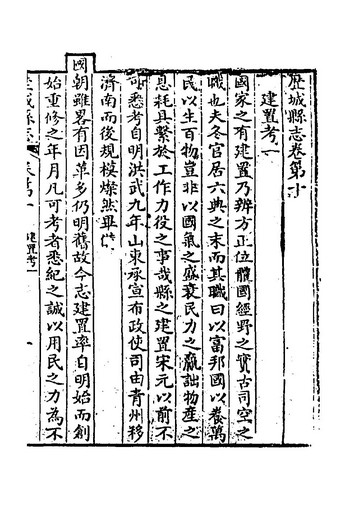 歷城縣志卷第十
建置考一
國家之有建置乃辨方正位體國經野之實古司空之
職也夫冬官居六典之末而其職曰以富邦國以養萬
民以生百物豈非以國氣之盛衰民力之贏詘物產之
息耗具繫於工作力役之事哉縣之建置宋元以前不
可悉考自明洪武九年山東承宣布政使司由青州移
濟南而後規模燦然畢
國朝雖畧有因革多仍明舊故今志建置率自明始而創
始重修之年月凡可考者悉紀之誠以用民之力為不
建置考一